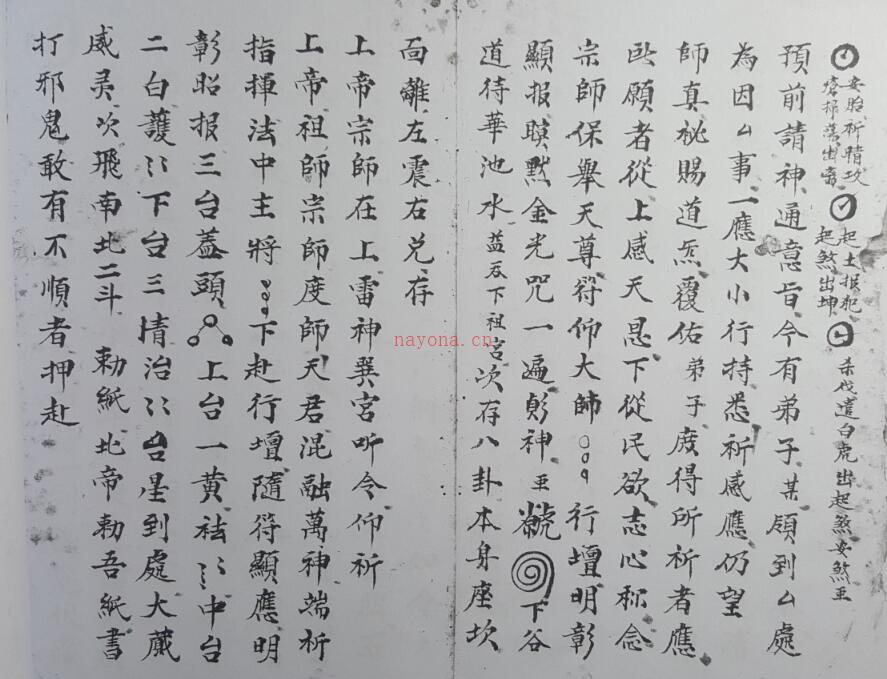 安胎祈晴攻
起土报犯
起煞出坤
杀伐遣白虎出起煞安煞王
預前請神通意旨今有弟子某頋到厶處
為因厶事一應大小行持悉祈感應仍望
師真祕賜道炁覆佑弟子庻得所祈者應
所願者從上感天恩下從民欲志心称念
宗師保舉天尊符仰大師行壇明彰
顯报瞑默金光咒一遍彰神王下谷
道待華池水盖吞下祖宮次存八卦本身座坎
面離左震右兑存
上帝宗師在上雷神巽宮听令仰祈
上帝祖師宗師度師天君混融萬神端祈
指揮法中主將下赴行壇隨符顯應明
彰昭报三台蓋頭上台一黄祛〻中台
二白護〻下台三情治〻台星到處大藏
威灵次飛南北二斗 勅紙北帝勅吾紙書
打邪鬼敢有不順者押赴
nayona.cn